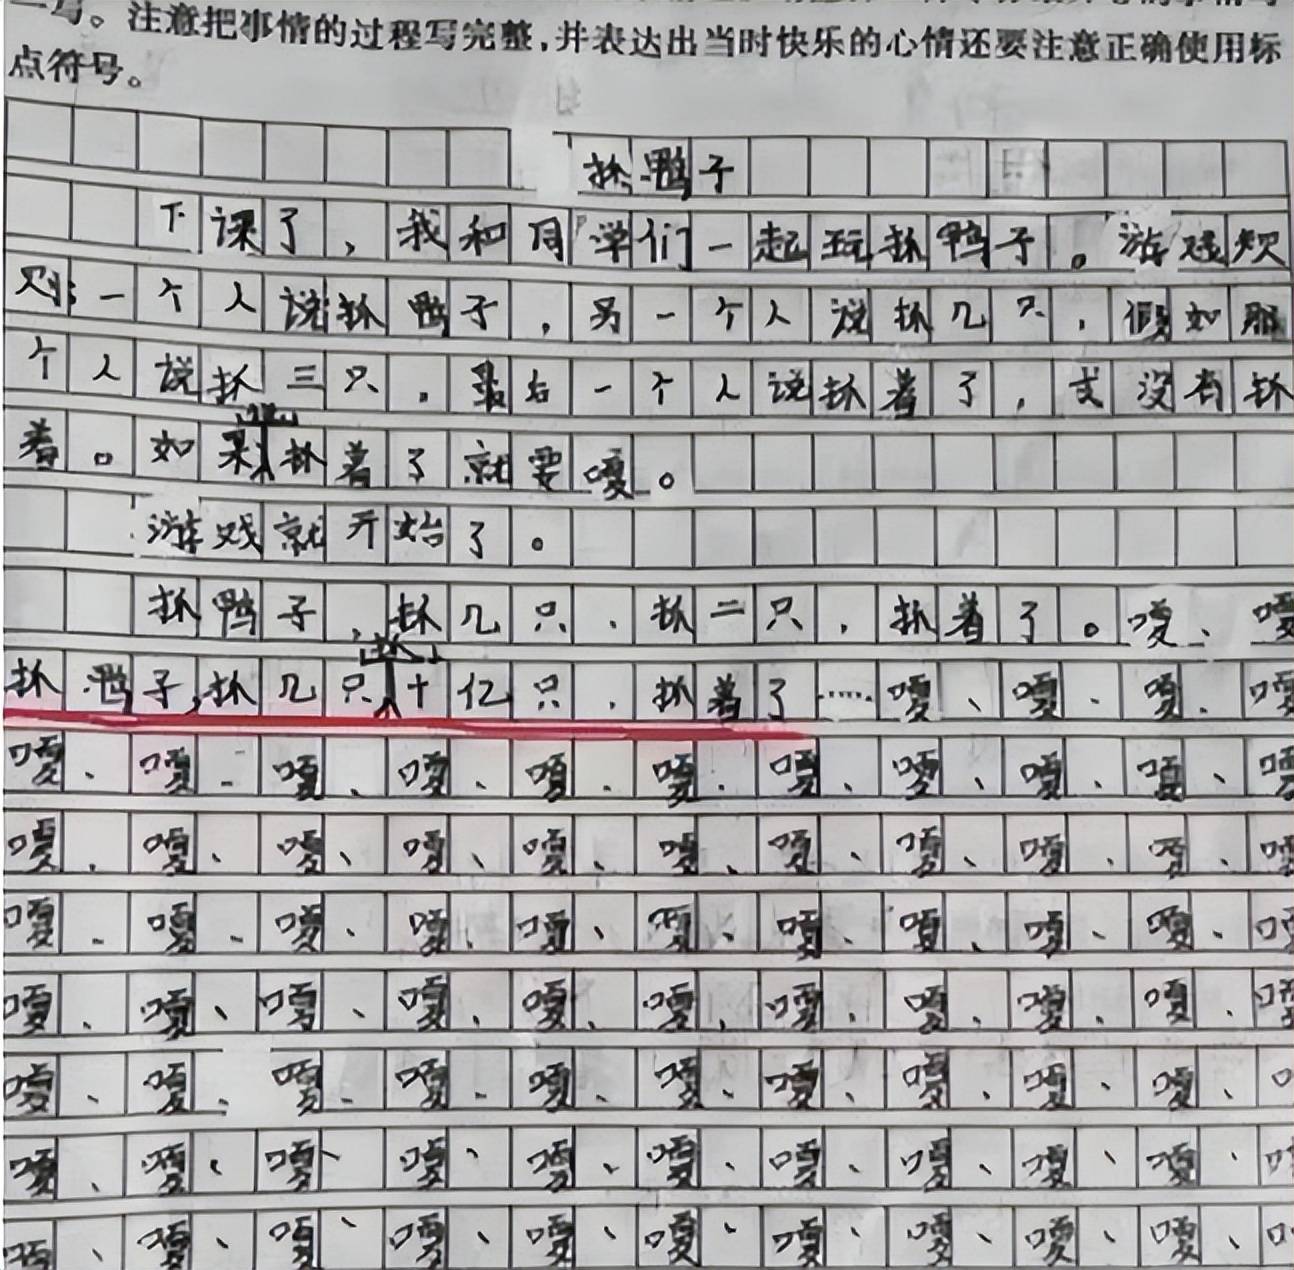 写。注意把事情的过程写完整,并表达出当时快乐的心情还要注意正确使用标
点符号。
抓鸭子
下课了,我和同学们一起玩抓鸭子。游戏规
则:一个人说抓鸭子,另一个人说抓几只,假如那
个人说抓三只。最后一个人说抓着了,或没有抓
着。如果说抓着了就要嘎。
游戏就开始了。
抓鸭子,抓几只,抓二只,抓着了。嘎、嘎
抓鸭子,抓几只抓十亿只,抓着了……嘎、嘎、嘎、嘎
嘎、嘎、嘎、嘎、嘎、嘎、嘎、嘎、嘎、嘎、嘎
嘎、嘎、嘎、嘎、嘎、嘎、嘎、嘎、嘎、嘎、嘎
嘎、嘎、嘎、嘎、嘎、嘎、嘎、嘎、嘎、嘎、
嘎、嘎、嘎、嘎、嘎、嘎、嘎、嘎、嘎、嘎、嘎
嘎、嘎、嘎、嘎、嘎、嘎、嘎、嘎、嘎、嘎、
嘎、嘎、嘎、嘎、嘎、嘎、嘎、嘎、嘎、嘎、
嘎、嘎、嘎、嘎、嘎、嘎、嘎、嘎、嘎、嘎、